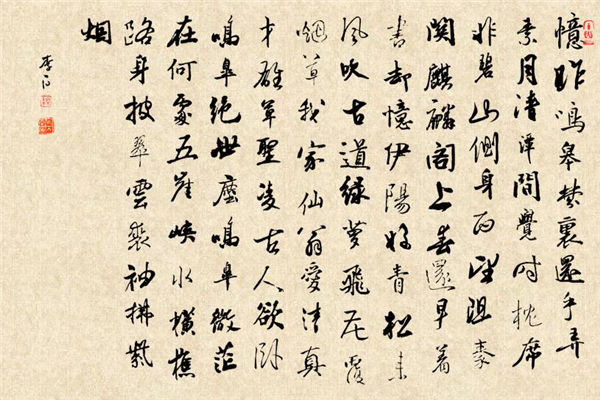 憶昨鳴皋夢裏還手弄
素月清潭間覺時枕席
非碧山側身西望阻秦
關麒麟閣上春還早著
書却憶伊陽好青松来
風吹古道緑蘿飛花覆
烟草我家仙翁愛清真
才雄草聖凌古人欲卧
鳴皋絶世塵鳴皋微茫
在何處五崖峽水橫樵
路身披翠雲裘袖拂紫
烟
李白